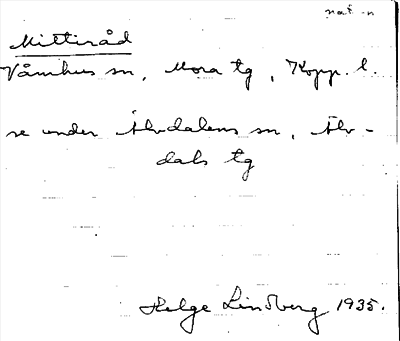 nat-n
Mittiråd
Våmhus sn, Mora tg, Kopp. l.
se under Älvdalens sn, Älv-
dals tg
Helge Lindberg 1935.